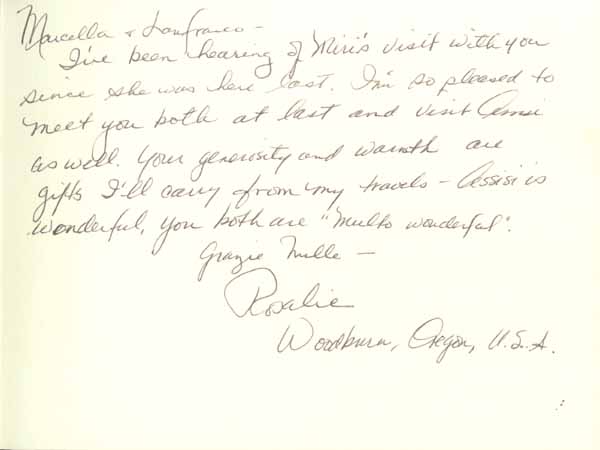 Marcella & Lanfranco -
I've been hearing of Miri's visit with you
since she was here last. I'm so pleased to
meet you both at last and visit
as well. Your generosity and warmth are
gifts I'll carry from my travels - Assisi is
wonderful, you both are "multo wonderful".
Grazie Mille -
Rosalie
Woodburn, Oregon, U.S.A.